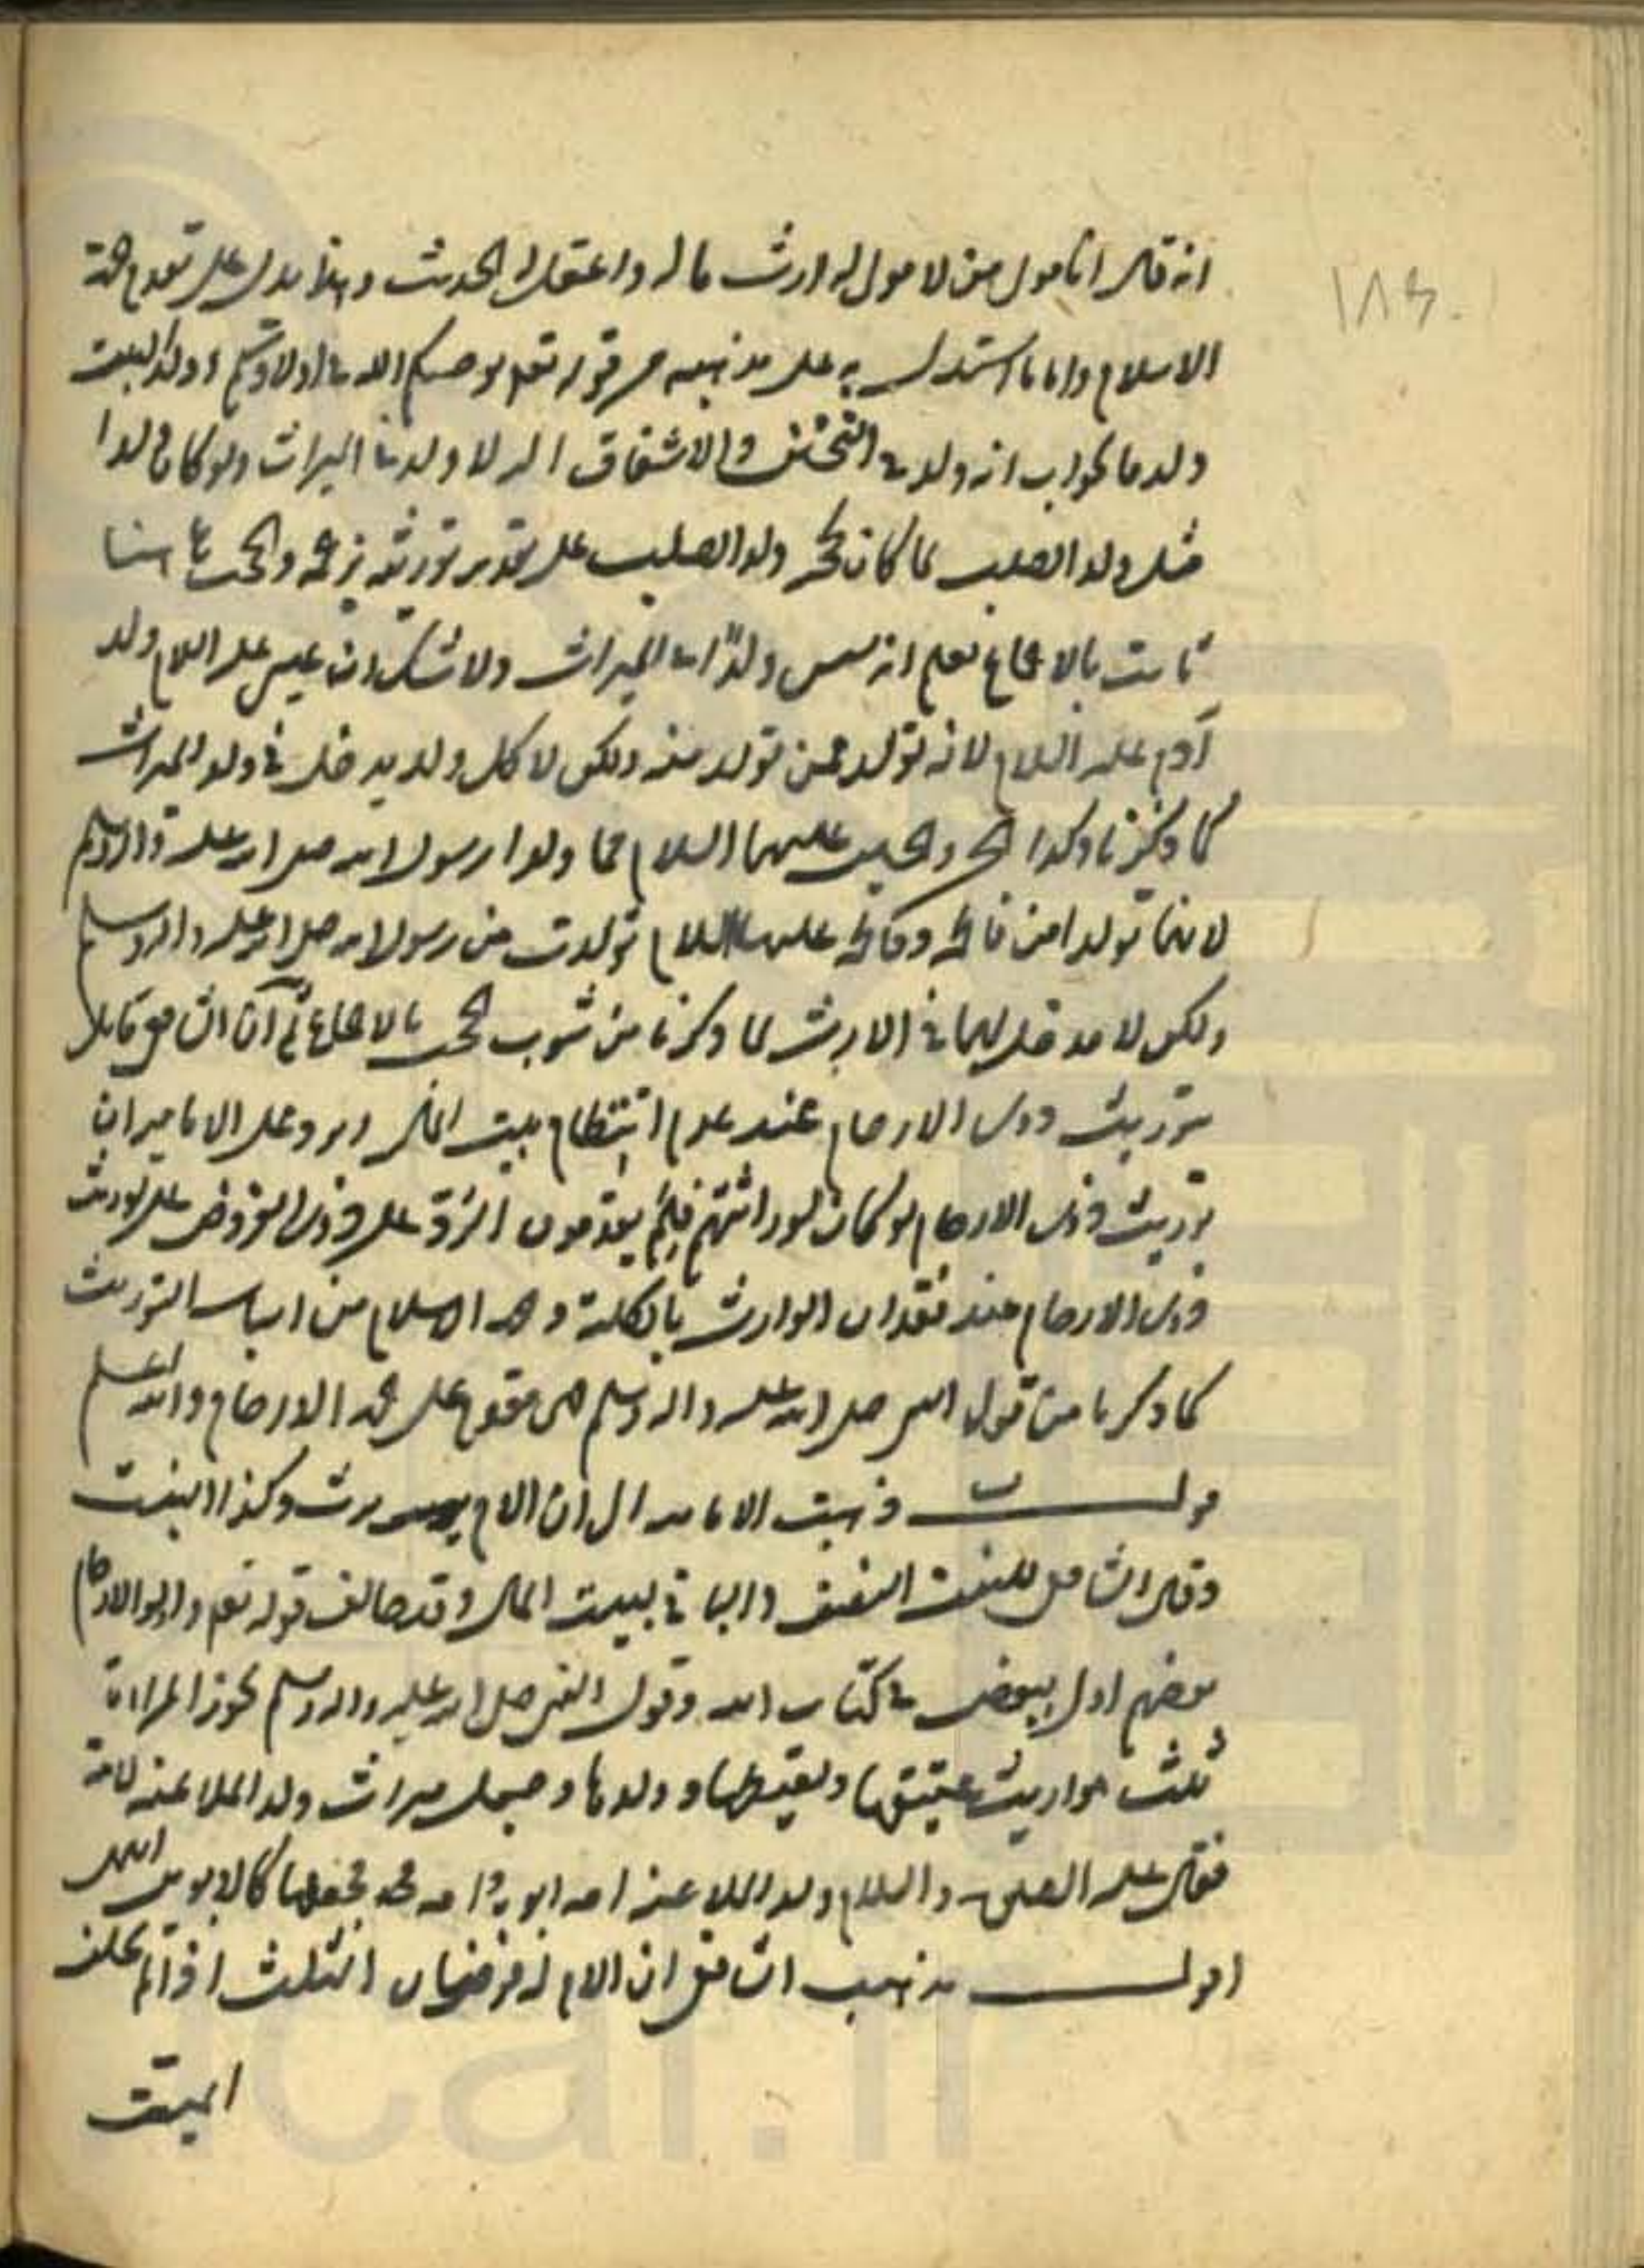 انه قال انا مولى من لا مولى له ارث ماله واعقل الحديث وهذا يدل على تقديم جهة
الاسلام واما ما استدل به على مذهبه من قوله تعالى يوصيكم الله في اولادكم وولد البنت
ولد فالجواب انه ولد في التحنن والاشفاق اليه لا ولد في الميراث ولو كان ولدا
مثل ولد الصلب لما كان يحجبه ولد الصلب على تقدير توريثه بزعمه والحجب هاهنا
ثابت بالاجماع فعلم انه ليس ولدا في الميراث ولا شك ان عيسى عليه السلام ولد
آدم عليه السلام لانه تولد عمن تولد منه ولكن لا كل ولد يدخل في ولد الميراث
كما ذكرنا وكذا الحسن والحسين عليهما السلام هما ولدا رسول الله صلى الله عليه واله وسلم
لانهما تولدا من فاطمة وفاطمة عليها السلام تولدت من رسول الله صلى الله عليه واله وسلم
ولكن لا مدخل لهما في الارث لما ذكرنا من ثبوت الحجب بالاجماع ثم ان الشافعي قايل
بتوريث ذوي الارحام عند عدم انتظام بيت المال ويرد على الامامية ان
توريث ذوي الارحام لو كان لوراثتهم فلم يقدمون الرد على ذوي الفروض على توريث
ذوي الارحام عند فقدان الوارث بالكلية وجهة الاسلام من اسباب التوريث
كما ذكرنا من قول النبي صلى الله عليه واله وسلم هي مقدم على جهة الارحام والله اعلم
قولـــــه ذهبت الامامية الى ان الام ترث وكذا البنت
وقال الشافعي للبنت النصف والباقي لبيت المال وقد خالف قوله تعالى واولوا الارحام
بعضهم اولى ببعض في كتاب الله وقول النبي صلى الله عليه واله وسلم تحوز المراة
ثلث مواريث عتيقها ولقيطها وولدها وجعل ميراث ولد الملاعنة لامه
فقال عليه الصلوة والسلام ولد الملاعنة امه ابوه وامه فجعلها كالابوين انتهى
اقولـــــ مذهب الشافعي ان الام لها فرضان الثلث اذا لم يخلف
الميت